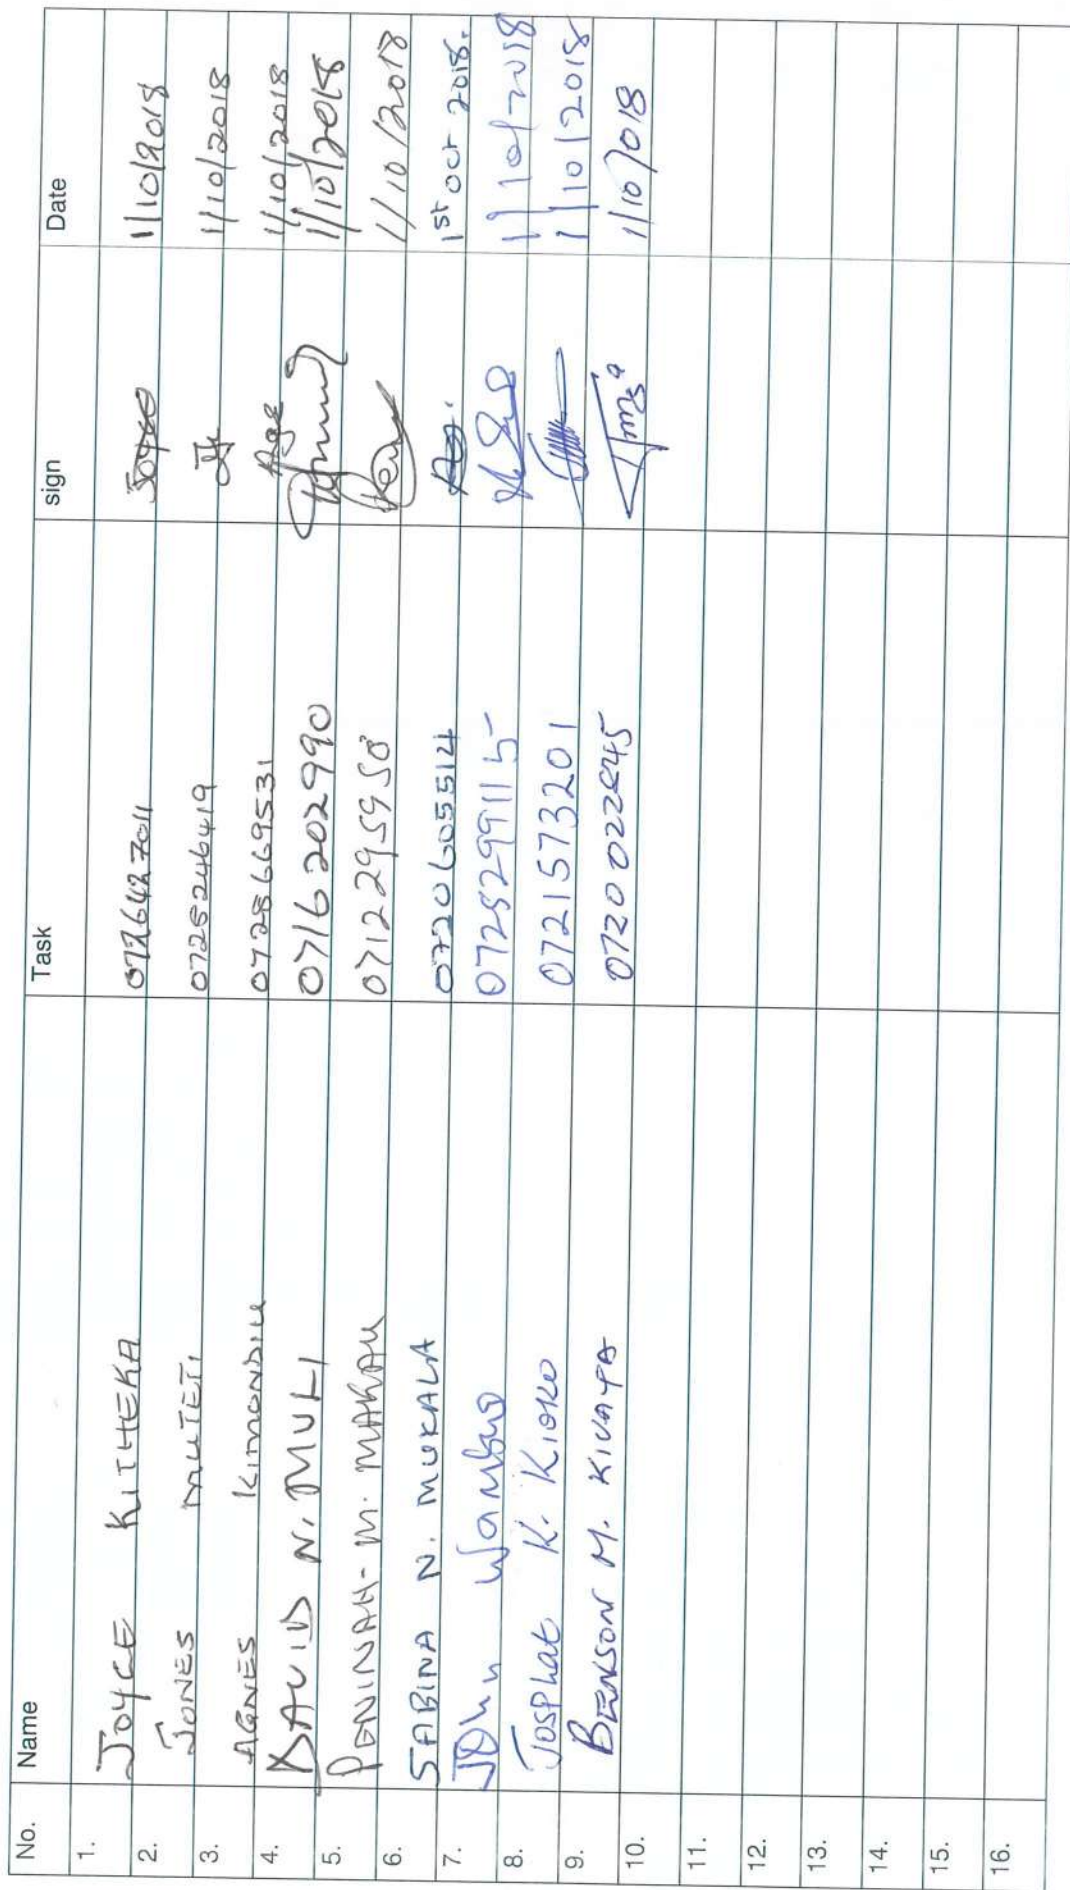 No. Name Task sign Date
1.
2. JOYCE KITHEKA 0726427011 Joyce 1/10/2018
3. JONES MUTETI 0725246419 1/10/2018
4. AGNES KIMONDIU 0728669531 Age 1/10/2018
5. DAVID N. MULI 0716202990 1/10/2018
6. PENINAH M. MAKAU 0712295950 1/10/2018
7. SABINA N. MUKALA 0720605514 1st Oct 2018.
8. John Wambua 0725299115 1/10/2018
9. Josphat K. Kioko 0721573201 1/10/2018
10. BENSON M. KIVAYA 0720022845 1/10/018
11.
12.
13.
14.
15.
16.